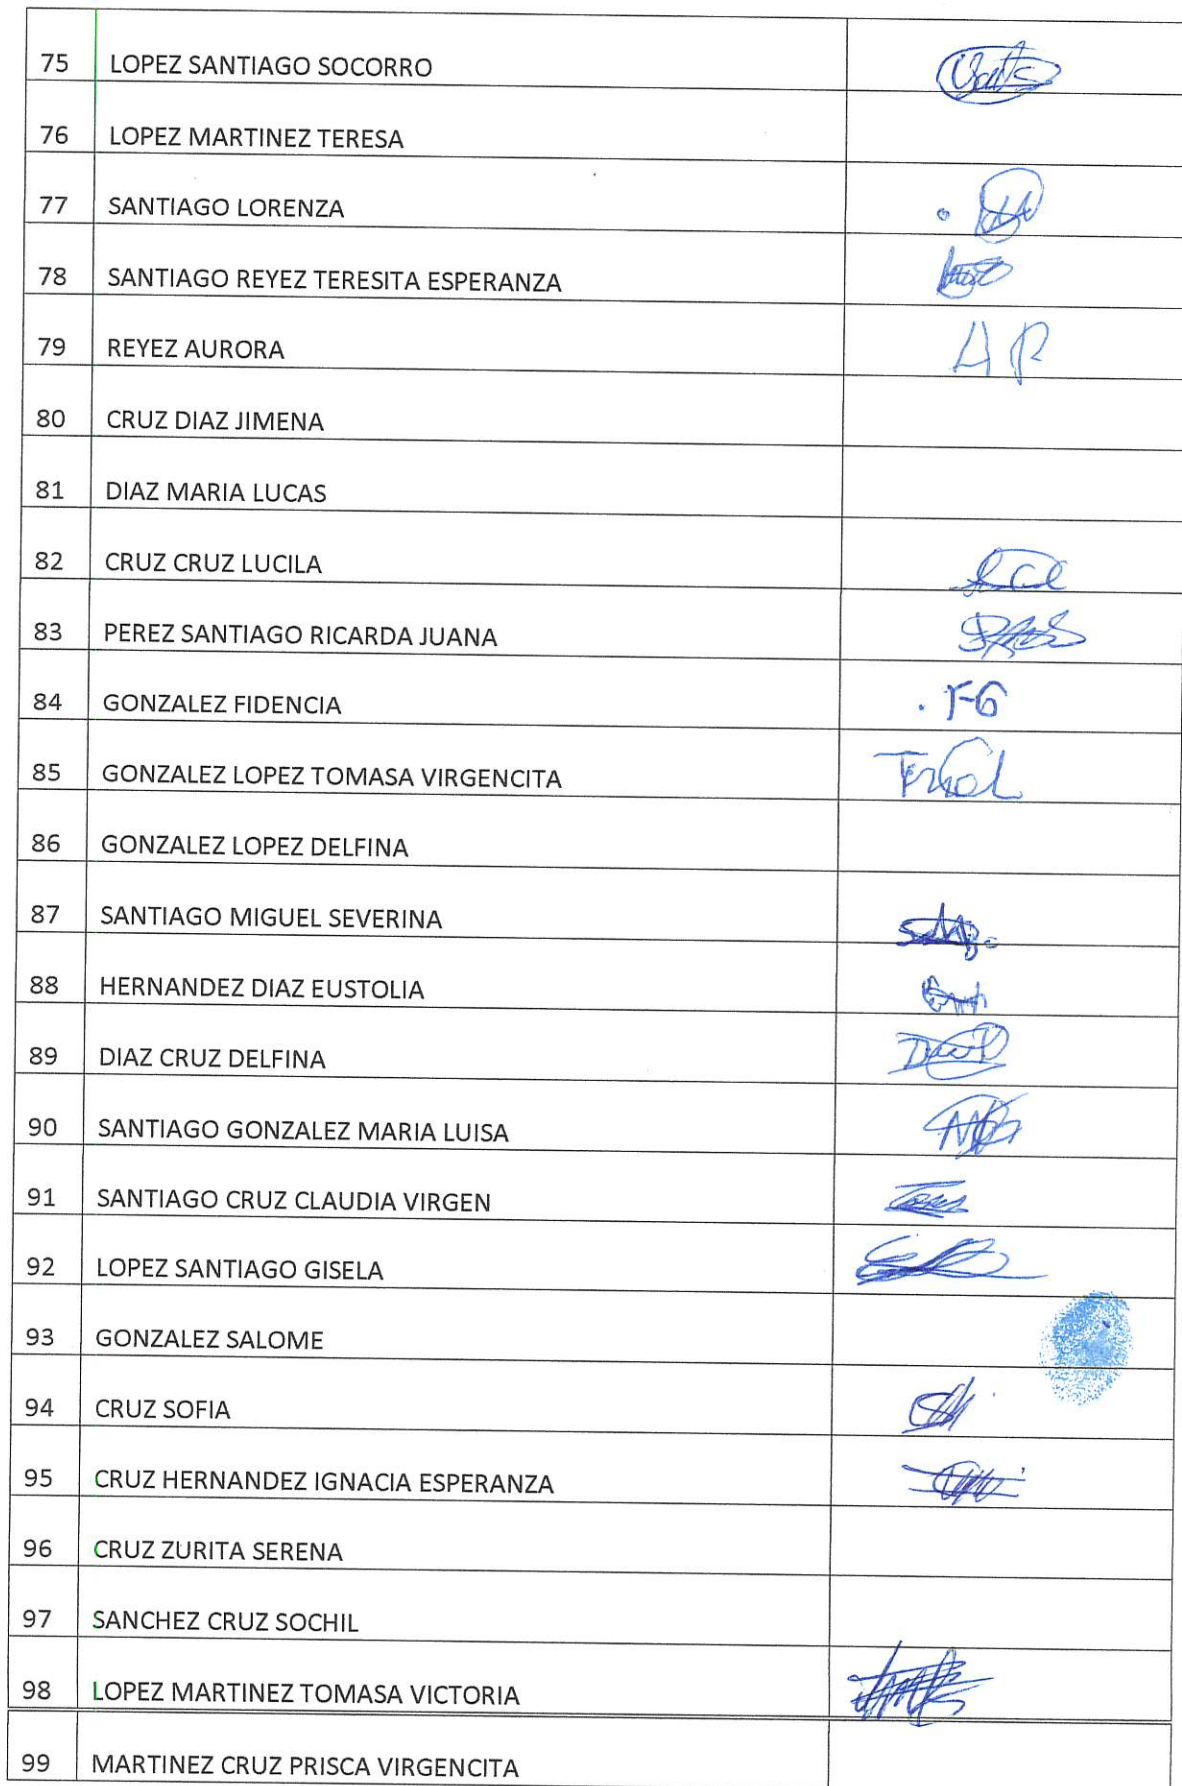 75 LOPEZ SANTIAGO SOCORRO
76 LOPEZ MARTINEZ TERESA
77 SANTIAGO LORENZA
78 SANTIAGO REYEZ TERESITA ESPERANZA
79 REYEZ AURORA AR
80 CRUZ DIAZ JIMENA
81 DIAZ MARIA LUCAS
82 CRUZ CRUZ LUCILA
83 PEREZ SANTIAGO RICARDA JUANA
84 GONZALEZ FIDENCIA F-G
85 GONZALEZ LOPEZ TOMASA VIRGENCITA
86 GONZALEZ LOPEZ DELFINA
87 SANTIAGO MIGUEL SEVERINA
88 HERNANDEZ DIAZ EUSTOLIA
89 DIAZ CRUZ DELFINA
90 SANTIAGO GONZALEZ MARIA LUISA
91 SANTIAGO CRUZ CLAUDIA VIRGEN
92 LOPEZ SANTIAGO GISELA
93 GONZALEZ SALOME
94 CRUZ SOFIA
95 CRUZ HERNANDEZ IGNACIA ESPERANZA
96 CRUZ ZURITA SERENA
97 SANCHEZ CRUZ SOCHIL
98 LOPEZ MARTINEZ TOMASA VICTORIA
99 MARTINEZ CRUZ PRISCA VIRGENCITA